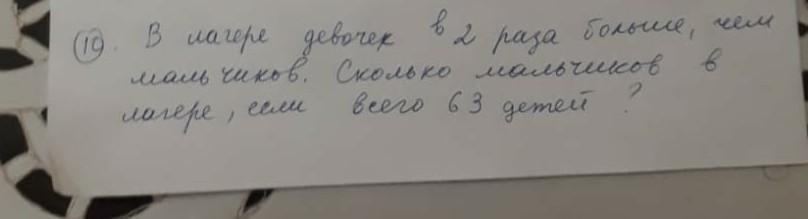 19. В лагере девочек в 2 раза больше, чем
мальчиков. Сколько мальчиков в
лагере, если всего 63 детей?